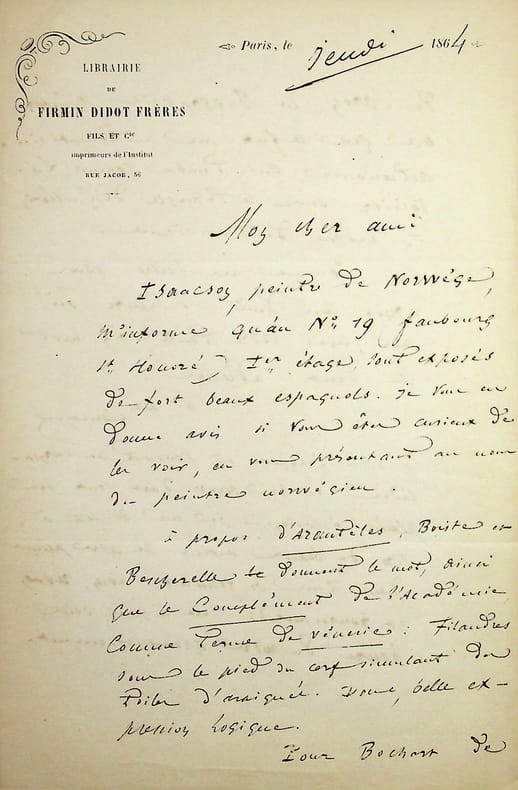 Paris, le jeudi 1864
LIBRAIRIE
DE
FIRMIN DIDOT FRÈRES
FILS ET Cie
imprimeurs de l'Institut
RUE JACOB, 56
Mon cher ami
Isaacson, peintre de Norwége,
m'informe qu'au No 19 faubourg
St Honoré, 1er étage, sont exposés
de fort beaux espagnols. je vous en
donne avis si vous êtes curieux de
les voir, en vous présentant au nom
du peintre norwégien.
à propos d'Arantèles, Boiste et
Bescherelle le donnent le mot, ainsi
que le Complément de l'Académie,
comme terme de vénerie : Filandres
sous le pied du cerf simulant des
toiles d'araignée. Donc, belle ex-
pression logique.
Pour Bochart de